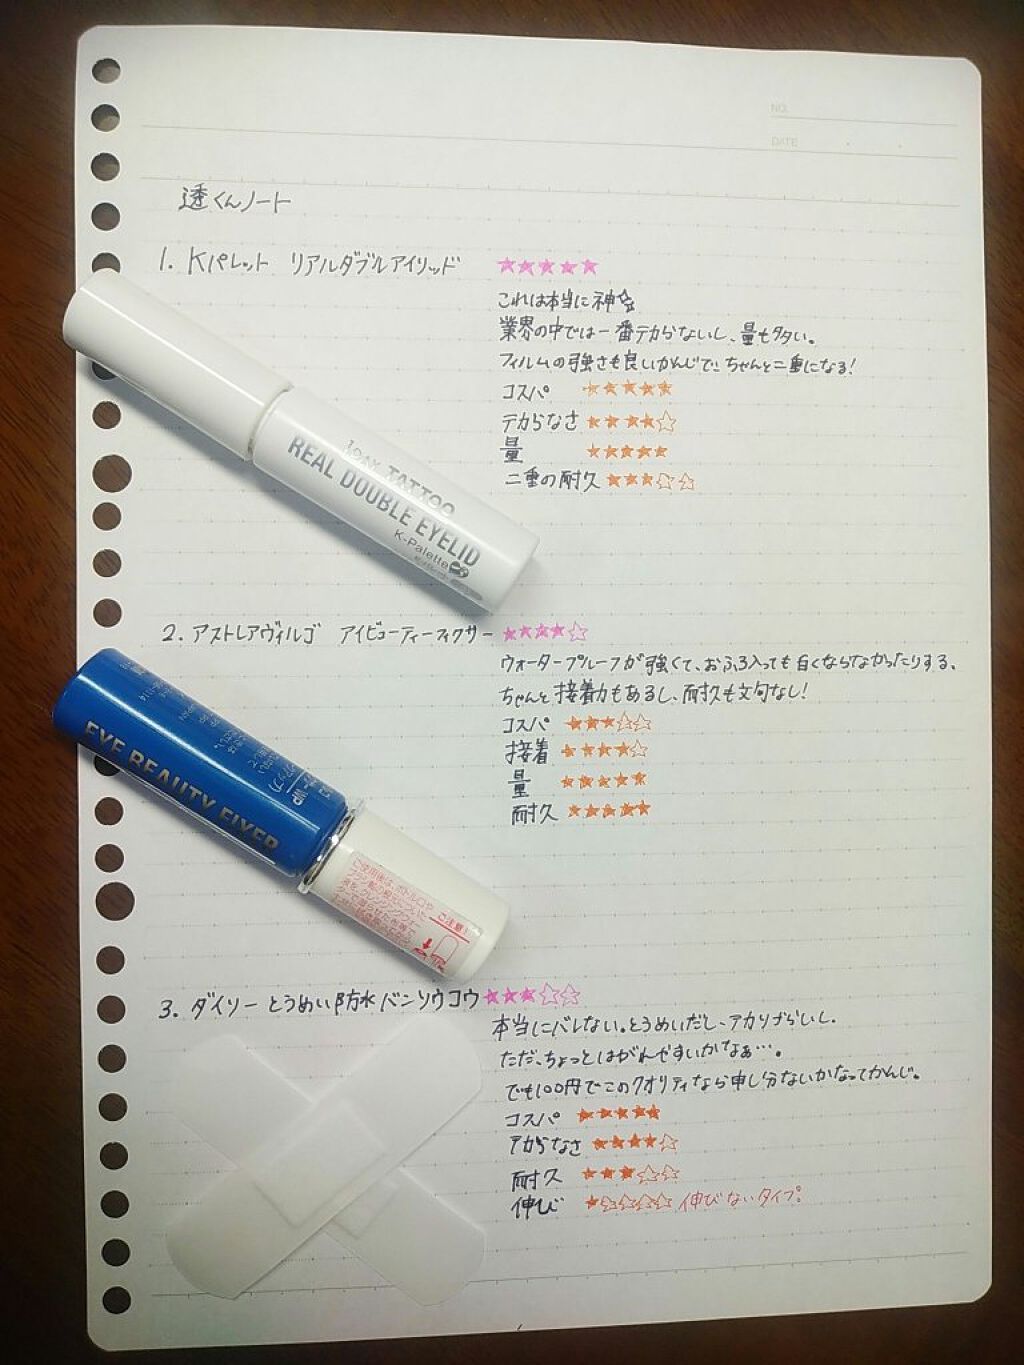 NO.
DATE
透くんノート
1. Kパレット リアルダブルアイリッド ★★★★★
これは本当に神☆
業界の中では一番テカらないし、量も多い。
フィルムの強さも良いかんじで、ちゃんと二重になる!
コスパ ★★★★★
テカらなさ ★★★★☆
量 ★★★★★
二重の耐久 ★★★☆☆
1DAY TATTOO
REAL DOUBLE EYELID
K-Palette
2. アストレアヴィルゴ アイビューティーフィクサー ★★★★☆
ウォータープルーフが強くて、おふろ入っても白くならなかったりする、
ちゃんと接着力もあるし、耐久も文句なし!
コスパ ★★★☆☆
接着 ★★★★☆
量 ★★★★★
耐久 ★★★★★
EYE BEAUTY FIXER
ご注意!
3. ダイソー とうめい防水バンソウコウ ★★★☆☆
本当にバレない。とうめいだし、テカりずらいし、
ただ、ちょっとはがれやすいかなぁ…。
でも100円でこのクオリティなら申し分ないかなってかんじ。
コスパ ★★★★★
テカらなさ ★★★★☆
耐久 ★★★☆☆
伸び ★☆☆☆☆ 伸びないタイプ。